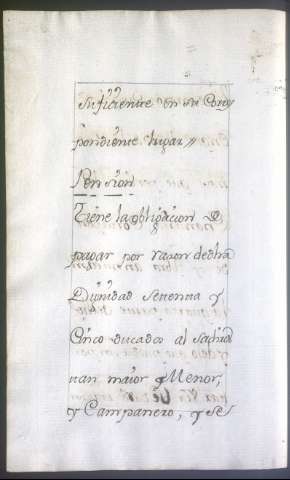 suficiente en su Corres
pondiente lugar //
Pension
Tiene la obligacion de
pagar por razon de dha
Dignidad setenta y
Cinco ducados al Sachris
tan maior y Menor,
y Campanero, y se